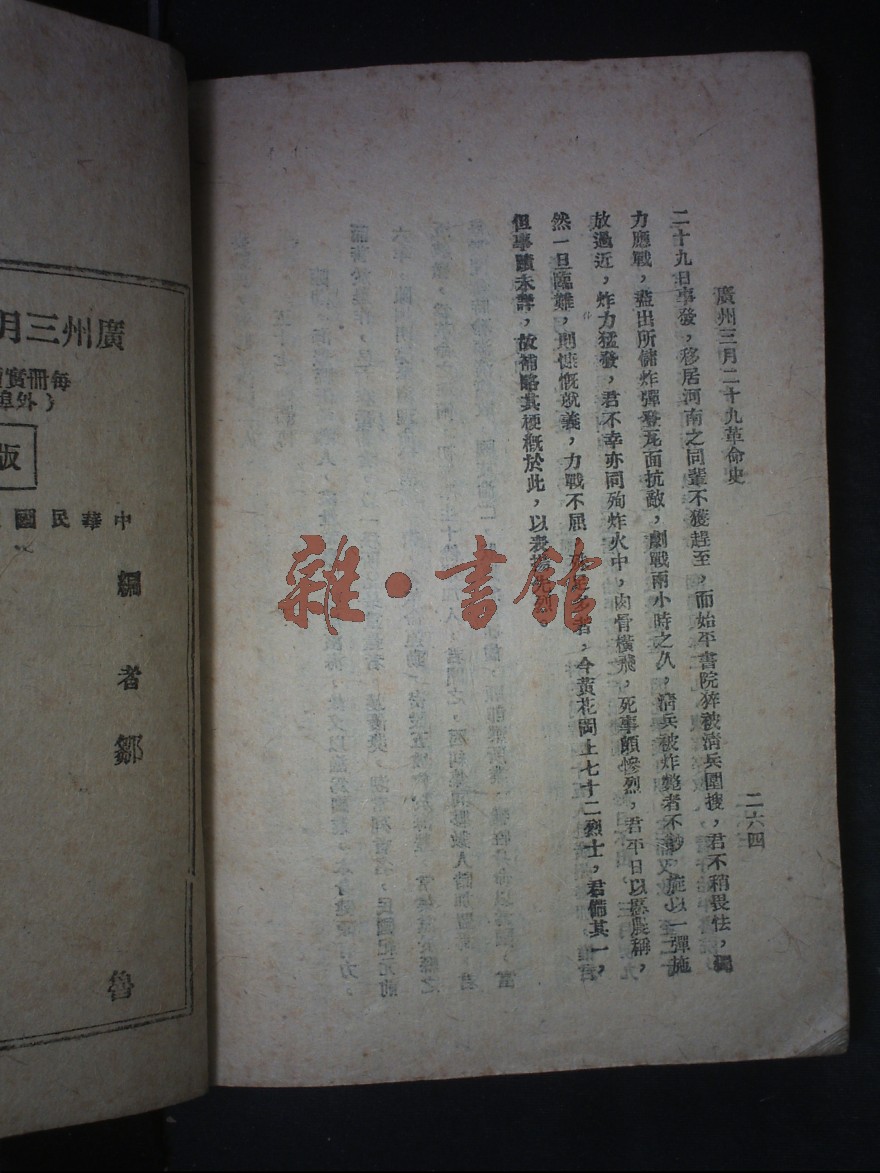 廣州三月二十九革命史
二六四
二十九日事發，移居河南之同輩不獲趕至，而始平書院猝被清兵圍搜，君不稍畏怯，獨
力應戰，盡出所儲炸彈登瓦面抗敵，劇戰兩小時之久，清兵被炸斃者不尠，旋以一彈施
放過近，炸力猛發，君不幸亦同殉炸火中，肉骨橫飛，死事頗慘烈，君平日以愿謹稱，
然一旦臨難，則慷慨就義，力戰不屈，者，今黃花岡上七十二烈士，君備其一，
但事蹟未詳，故補略其梗概於此，以表揚先烈
廣州三月
每冊實
外埠
版
中華民國
編者鄒魯
雜·書館